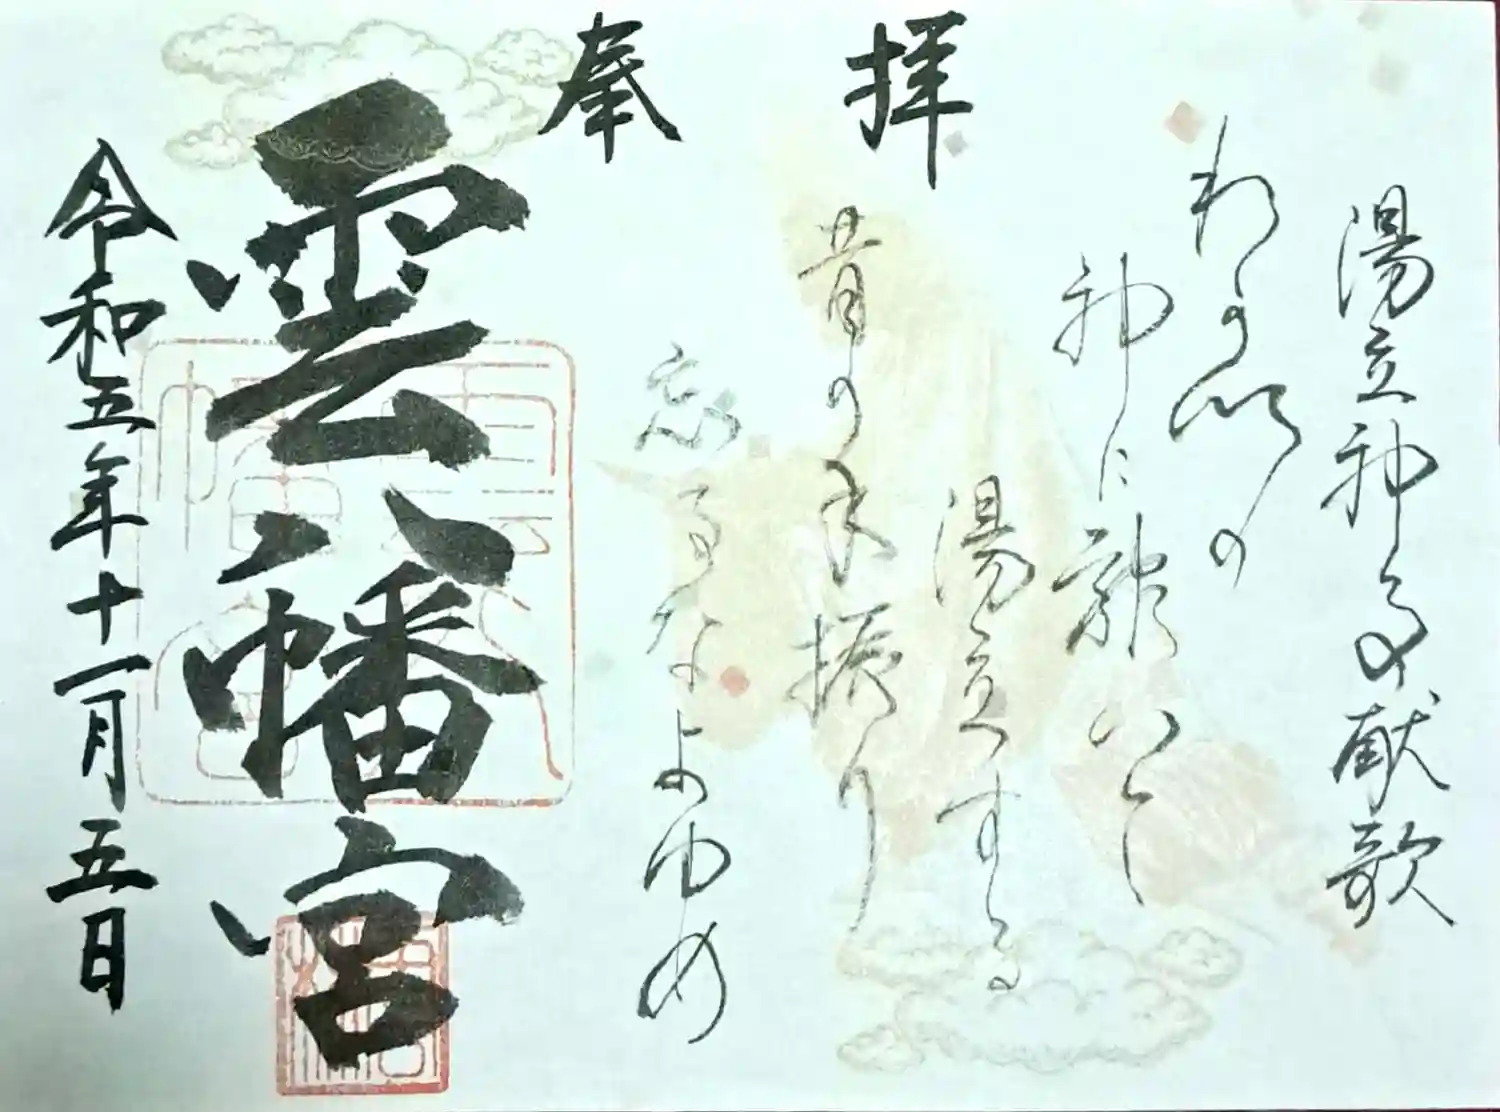 湯立神事献歌
の
神に
湯立する
拝
昔の手振り
忘るなよゆめ
奉
雲八幡宮
令和五年十一月五日